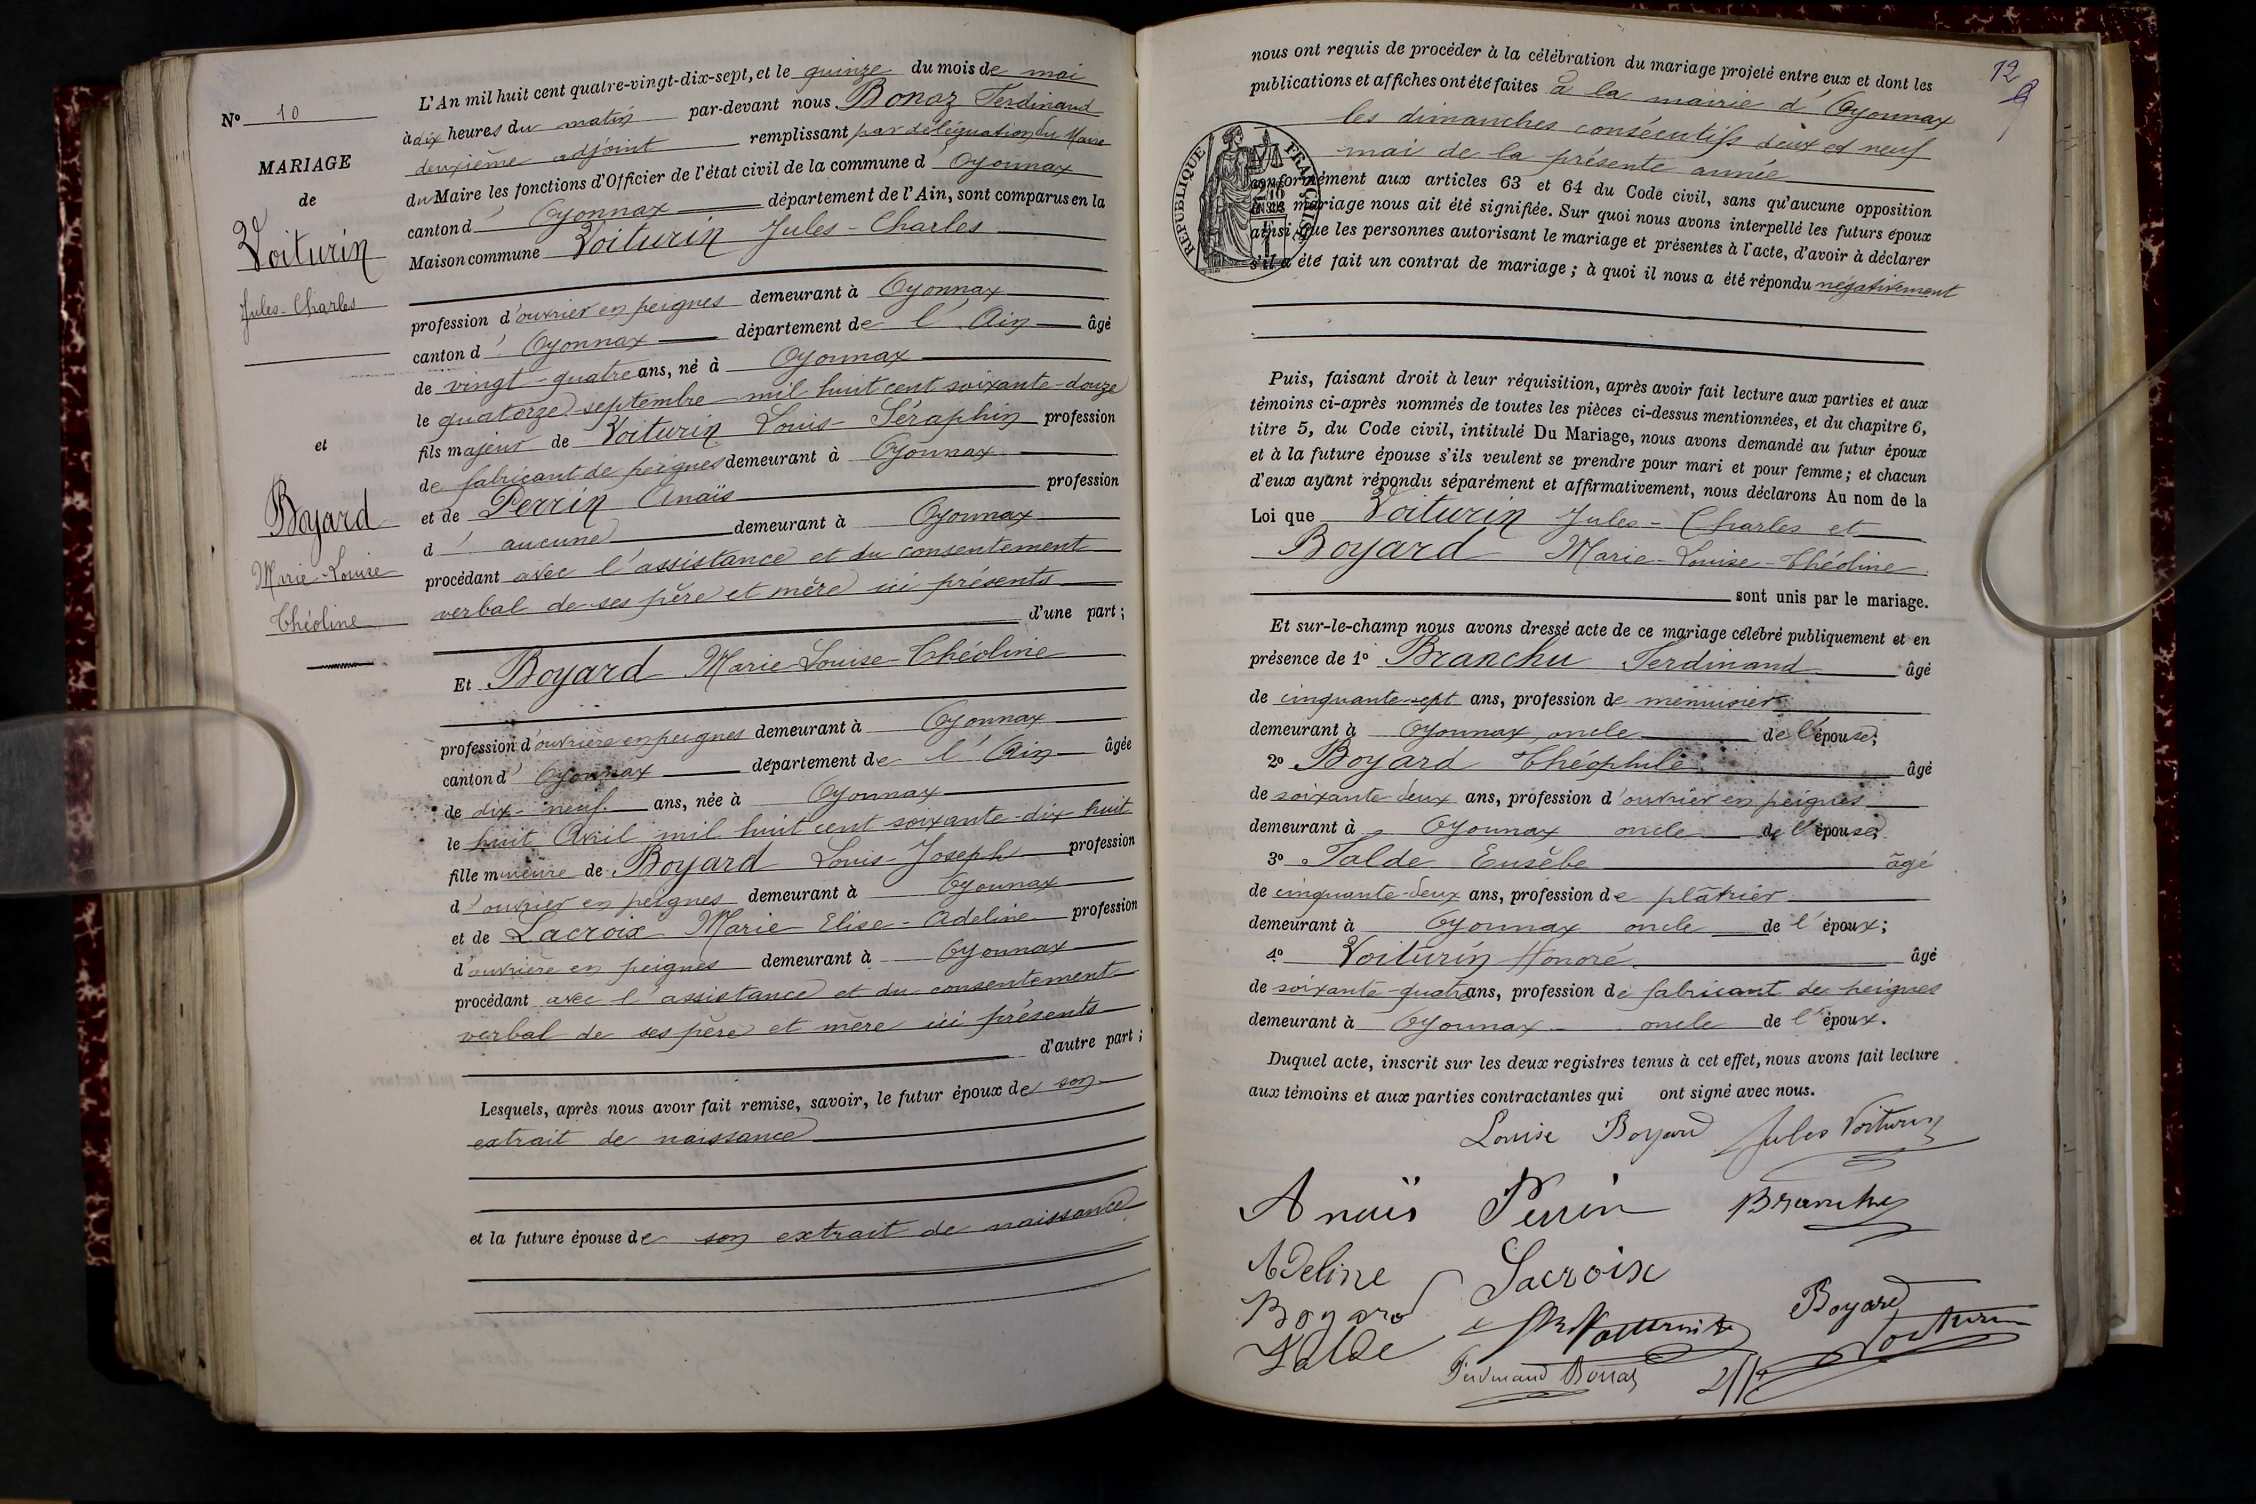 N° 10
MARIAGE
de
Voiturin
Jules-Charles
et
Boyard
Marie-Louise
Théoline
L'An mil huit cent quatre-vingt-dix-sept, et le quinze du mois de mai
à dix heures du matin par-devant nous Bonaz Ferdinand
deuxième adjoint remplissant par délégation du Maire
du Maire les fonctions d'Officier de l'état civil de la commune d Oyonnax
canton d' Oyonnax département de l'Ain, sont comparus en la
Maison commune Voiturin Jules-Charles
profession d'ouvrier en peignes demeurant à Oyonnax
canton d' Oyonnax département de l'Ain âgé
de vingt-quatre ans, né à Oyonnax
le quatorze septembre mil huit cent soixante-douze
fils majeur de Voiturin Louis Séraphin profession
de fabricant de peignes demeurant à Oyonnax
et de Perrin Anaïs profession
d' aucune demeurant à Oyonnax
procédant avec l'assistance et du consentement
verbal de ses père et mère ici présents
d'une part;
Et Boyard Marie-Louise-Théoline
profession d'ouvrière en peignes demeurant à Oyonnax
canton d' Oyonnax département de l'Ain âgée
de dix-neuf ans, née à Oyonnax
le huit Avril mil huit cent soixante-dix-huit
fille mineure de Boyard Louis-Joseph profession
d'ouvrier en peignes demeurant à Oyonnax
et de Lacroix Marie Elise-Adeline profession
d'ouvrière en peignes demeurant à Oyonnax
procédant avec l'assistance et du consentement
verbal de ses père et mère ici présents
d'autre part;
Lesquels, après nous avoir fait remise, savoir, le futur époux de son
extrait de naissance
et la future épouse de son extrait de naissance
12
nous ont requis de procéder à la célébration du mariage projeté entre eux et dont les
publications et affiches ont été faites à la mairie d'Oyonnax
les dimanches consécutifs deux et neuf
mai de la présente année
RÉPUBLIQUE FRANÇAISE
conformément aux articles 63 et 64 du Code civil, sans qu'aucune opposition
au mariage nous ait été signifiée. Sur quoi nous avons interpellé les futurs époux
ainsi que les personnes autorisant le mariage et présentes à l'acte, d'avoir à déclarer
s'il a été fait un contrat de mariage; à quoi il nous a été répondu négativement
Puis, faisant droit à leur réquisition, après avoir fait lecture aux parties et aux
témoins ci-après nommés de toutes les pièces ci-dessus mentionnées, et du chapitre 6,
titre 5, du Code civil, intitulé Du Mariage, nous avons demandé au futur époux
et à la future épouse s'ils veulent se prendre pour mari et pour femme; et chacun
d'eux ayant répondu séparément et affirmativement, nous déclarons Au nom de la
Loi que Voiturin Jules-Charles et
Boyard Marie-Louise-Théoline
sont unis par le mariage.
Et sur-le-champ nous avons dressé acte de ce mariage célébré publiquement et en
présence de 1° Branchu Ferdinand âgé
de cinquante-sept ans, profession de menuisier
demeurant à Oyonnax oncle de l'épouse;
2° Boyard Théophile âgé
de soixante deux ans, profession d'ouvrier en peignes
demeurant à Oyonnax oncle de l'épouse;
3° Talde Eusèbe âgé
de cinquante-deux ans, profession de plâtrier
demeurant à Oyonnax oncle de l'époux;
4° Voiturin Honoré âgé
de soixante-quatre ans, profession de fabricant de peignes
demeurant à Oyonnax oncle de l'époux.
Duquel acte, inscrit sur les deux registres tenus à cet effet, nous avons fait lecture
aux témoins et aux parties contractantes qui ont signé avec nous.
Louise Boyard Jules Voiturin
Anaïs Perrin Branchu
Adeline Lacroix
Boyard Boyard
Talde Voiturin
Ferdinand Bonaz